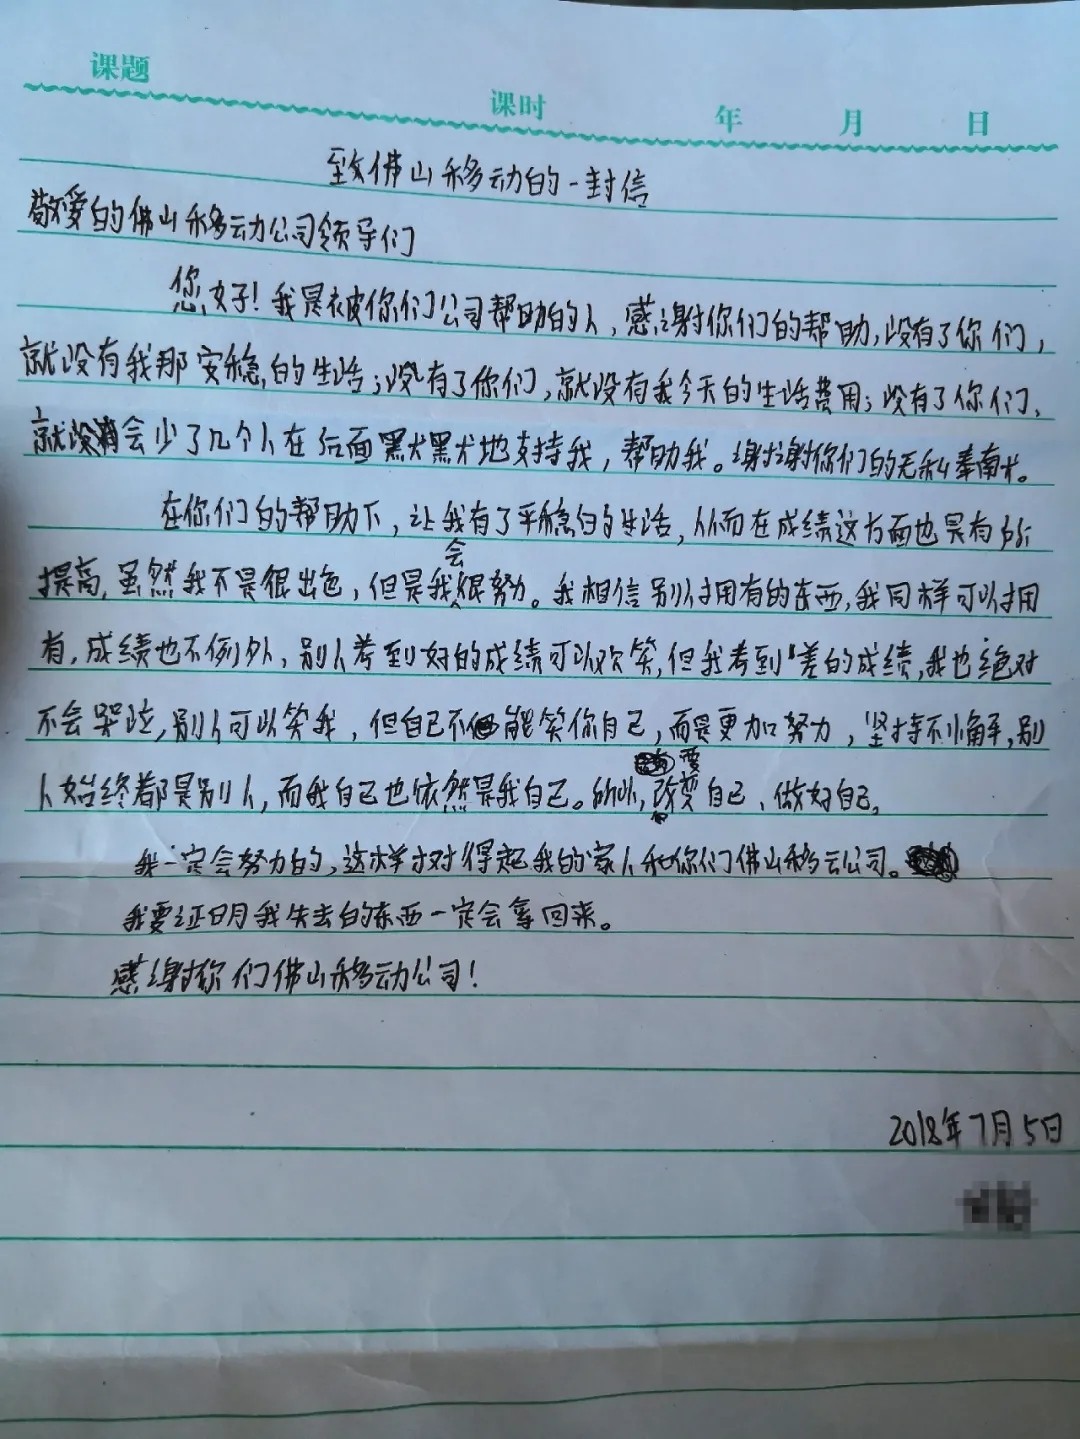 课题
课时 年 月 日
致佛山移动的一封信
敬爱的佛山移动公司领导们
您好!我是被你们公司帮助的人,感谢你们的帮助,没有了你们,
就没有我那安稳的生活;没有了你们,就没有我今天的生活费用;没有了你们,
就会少了几个人在后面默默地支持我,帮助我。谢谢你们的无私奉献。
在你们的帮助下,让我有了平稳的生活,从而在成绩这方面也是有所
提高,虽然我不是很出色,但是我会很努力。我相信别人拥有的东西,我同样可以拥
有,成绩也不例外,别人考到好的成绩可以欢笑,但我考到差的成绩,我也绝对
不会哭泣,别人可以笑我,但自己不能笑你自己,而是更加努力,坚持不懈,别
人始终都是别人,而我自己也依然是我自己。所以,要改变自己、做好自己。
我一定会努力的,这样才对得起我的家人和你们佛山移动公司。
我要证明我失去的东西一定会拿回来。
感谢你们佛山移动公司!
2018年7月5日